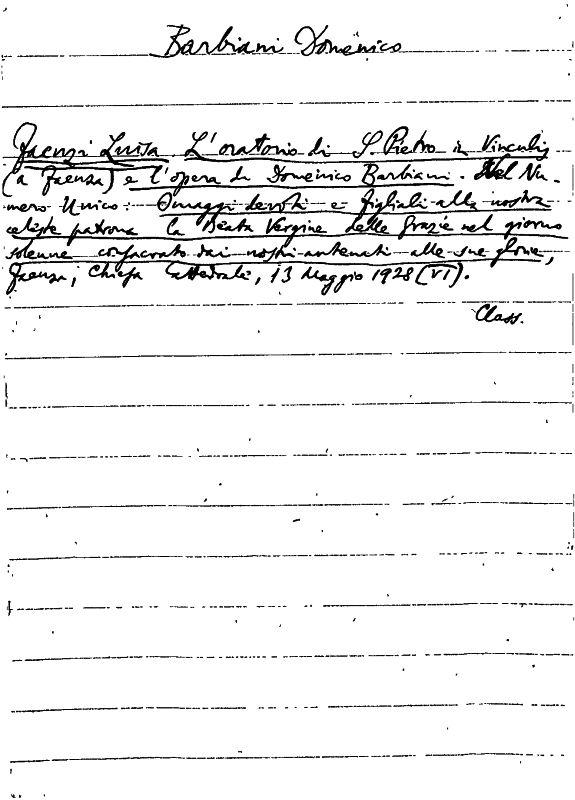 Barbiani Domenico
Faenzi Luisa L'oratorio di S. Pietro in Vinculis
(a Faenza) e l'opera di Domenico Barbiani. Nel Nu-
mero Unico: Omaggi devoti e figliali alla nostra
celeste patrona la Beata Vergine delle Grazie nel giorno
solenne consacrato dai nostri antenati alle sue glorie,
Faenza, Chiesa Cattedrale, 13 Maggio 1928 (VI).
Class.